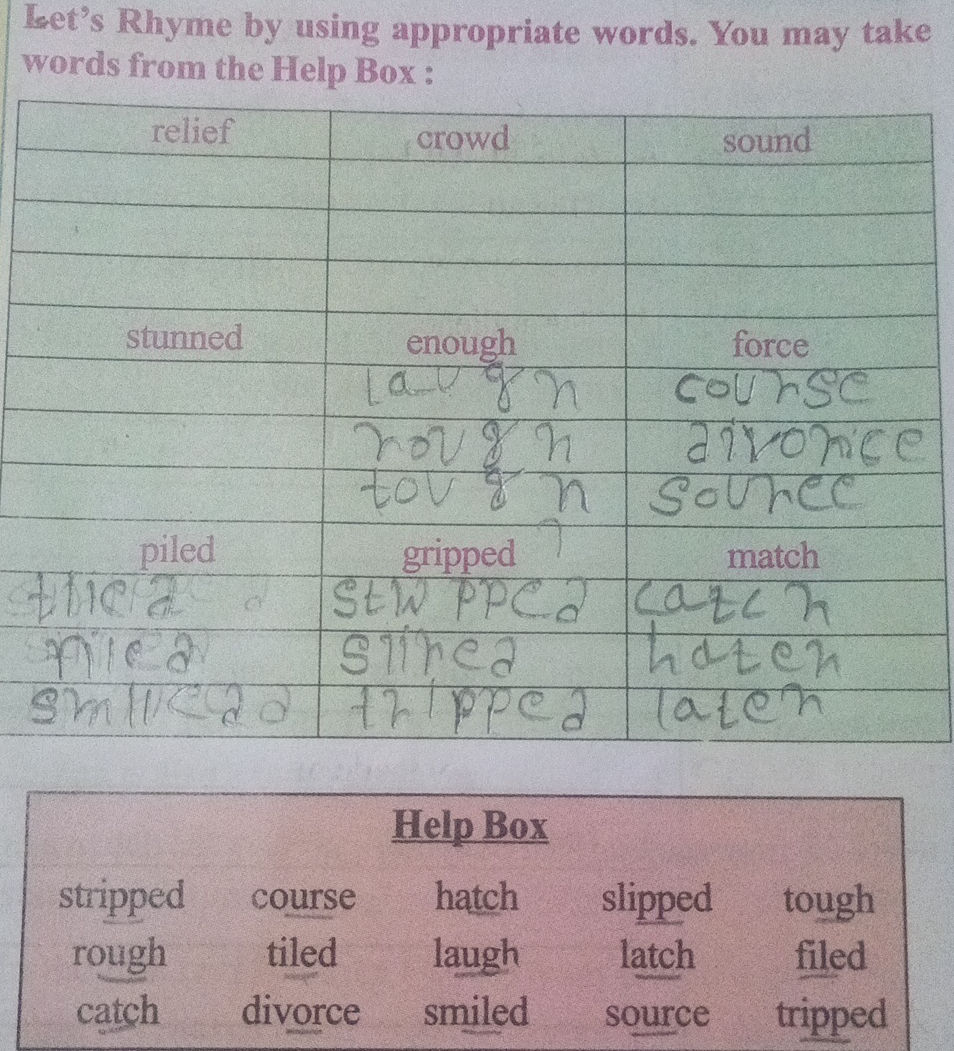 Let's Rhyme by using appropriate words. You may take
words from the Help Box :
relief crowd sound
stunned enough force
laugh course
rough divorice
tough sources
piled gripped match
tiled stripped catch
filed sliped hatch
smilled tripped latch
Help Box
stripped course hatch slipped tough
rough tiled laugh latch filed
catch divorce smiled source tripped